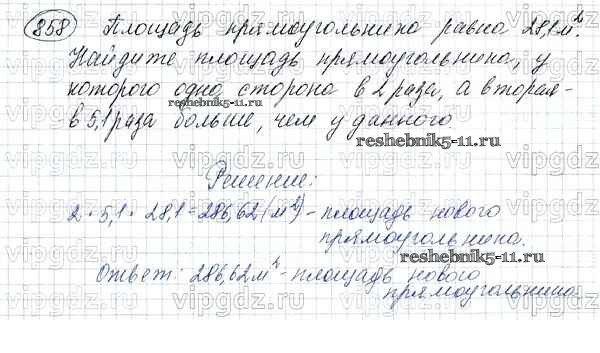 858 Площадь прямоугольника равна 28,1 м².
Найдите площадь прямоугольника, у
которого одна сторона в 2 раза, а вторая -
reshebnik5-11.ru
в 5,1 раза больше, чем у данного
reshebnik5-11.ru
Решение:
2 · 5,1 · 28,1 = 286,62 (м²) - площадь нового
прямоугольника.
reshebnik5-11.ru
Ответ: 286,62 м² - площадь нового
прямоугольника
vipgdz.ru